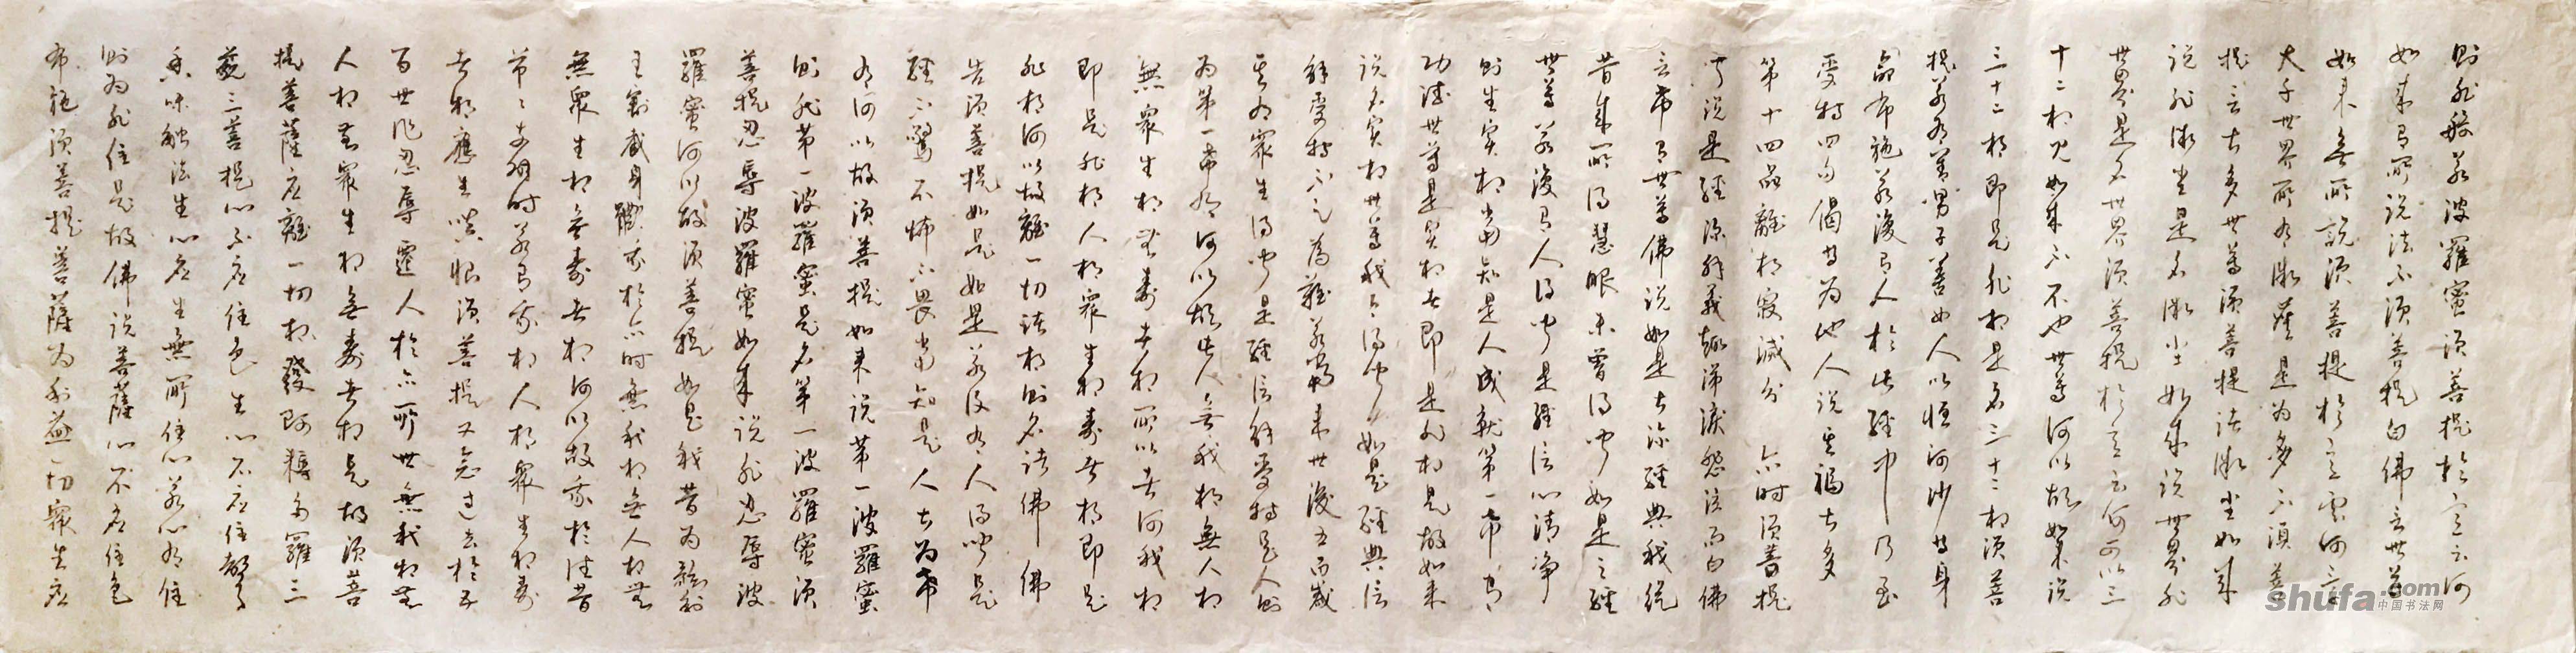 則非般若波羅蜜須菩提於意云何
如來有所說法不須菩提白佛言世尊
如來無所說須菩提於意云何三千
大千世界所有微塵是為多不須菩
提言甚多世尊須菩提諸微塵如來
說非微塵是名微塵如來說世界非
世界是名世界須菩提於意云何可以三
十二相見如來不不也世尊何以故如來說
三十二相即是非相是名三十二相須菩
提若有善男子善女人以恒河沙等身
命布施若復有人於此經中乃至
受持四句偈等為他人說其福甚多
第十四品離相寂滅分 尒時須菩提
聞說是經深解義趣涕淚悲泣而白佛
言希有世尊佛說如是甚深經典我從
昔來所得慧眼未曾得聞如是之經
世尊若復有人得聞是經信心清淨
則生實相當知是人成就第一希有
功德世尊是實相者即是非相是故如來
說名實相世尊我今得聞如是經典信
解受持不足為難若當來世後五百歲
其有眾生得聞是經信解受持是人則
為第一希有何以故此人無我相無人相
無眾生相無壽者相所以者何我相
即是非相人相眾生相壽者相即是
非相何以故離一切諸相則名諸佛佛
告須菩提如是如是若復有人得聞是
經不驚不怖不畏當知是人甚為希
有何以故須菩提如來說第一波羅蜜
則非第一波羅蜜是名第一波羅蜜須
菩提忍辱波羅蜜如來說非忍辱波
羅蜜何以故須菩提如是我昔為歌利
王割截身體我於尒時無我相無人相無
無眾生相無壽者相何以故我於往昔
節節支解時若有我相人相眾生相壽
者相應生嗔恨須菩提又念過去於五
百世作忍辱僊人於尒所世無我相無
人相無眾生相無壽者相是故須菩
提菩薩應離一切相發阿耨多羅三
藐三菩提心不應住色生心不應住聲
香味觸法生心應生無所住心若心有住
則為非住是故佛說菩薩心不應住色
布施須菩提菩薩為利益一切眾生應
shufa.com
中国书法网